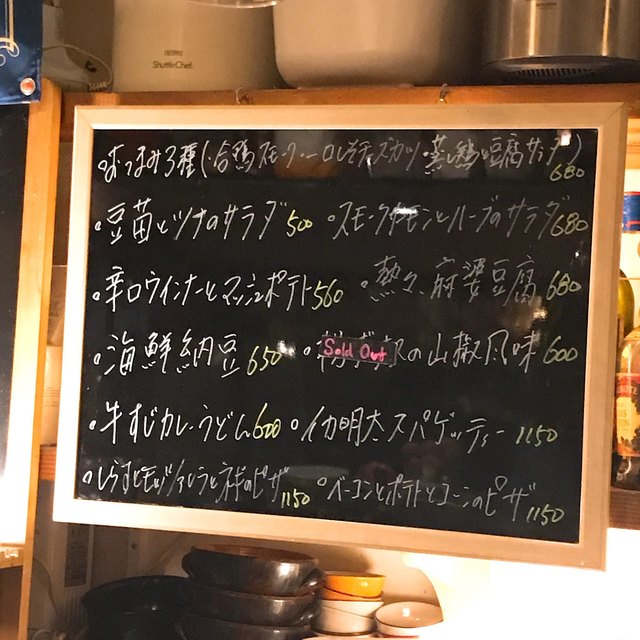 THERMOS
ShuttleChef
・おつまみ3種(・合鴨スモーク・一口しそチーズカツ・蒸し鶏と豆腐サラダ)
680
・豆苗とツナのサラダ 500 ・スモークサーモンとハーブのサラダ 680
・辛口ウインナーとマッシュポテト 560 ・熱々、麻婆豆腐 680
・海鮮納豆 650 ・ Sold Out の山椒風味 600
・牛すじカレーうどん 600 ・イカ明太スパゲッティー 1150
・しらすとモッツァレラとネギのピザ 1150 ・ベーコンとポテトとコーンのピザ 1150